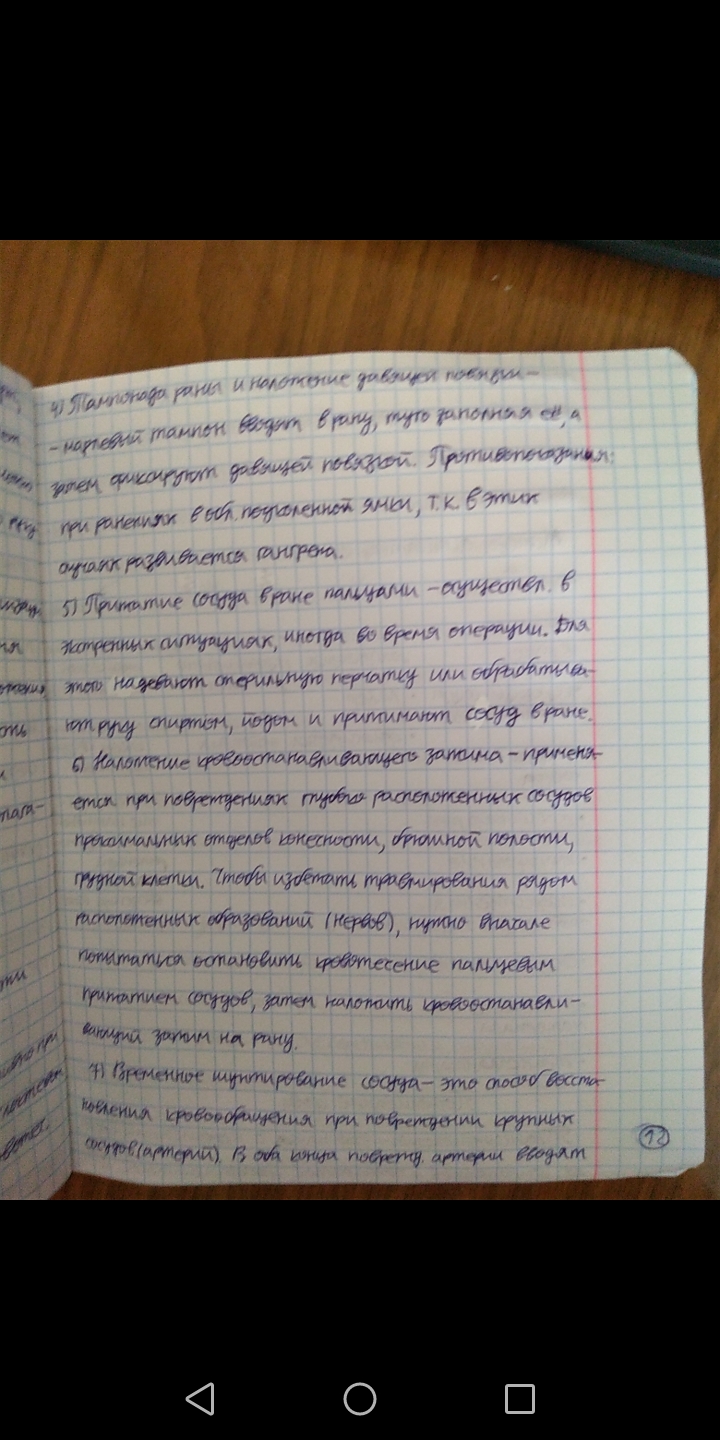 4) Тампонада раны и наложение давящей повязки –
– марлевый тампон вводят в рану, туго заполняя её, а
затем фиксируют давящей повязкой. Противопоказания:
при ранениях в обл. подколенной ямки, т.к. в этих
случаях развивается гангрена.
5) Прижатие сосуда в ране пальцами – осуществл. в
экстренных ситуациях, иногда во время операции. Для
этого надевают стерильную перчатку или обрабатыва-
ют руку спиртом, йодом и прижимают сосуд в ране.
6) Наложение кровоостанавливающего зажима – применя-
ется при повреждениях глубоко расположенных сосудов
проксимальных отделов конечности, брюшной полости,
грудной клетки. Чтобы избежать травмирования рядом
расположенных образований (нервов), нужно вначале
попытаться остановить кровотечение пальцевым
прижатием сосудов, затем наложить кровоостанавли-
вающий зажим на рану.
7) Временное шунтирование сосуда – это способ восста-
новления кровообращения при повреждении крупных
сосудов (артерий). В оба конца поврежд. артерии вводят
12